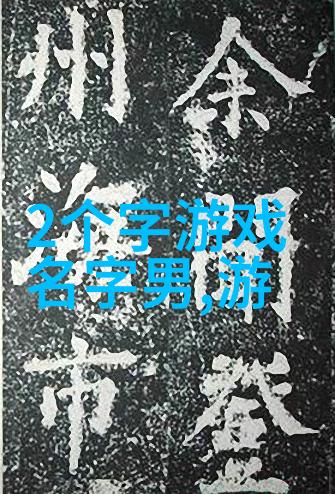 余聞登
州海市
2个字游戏
名字男,游